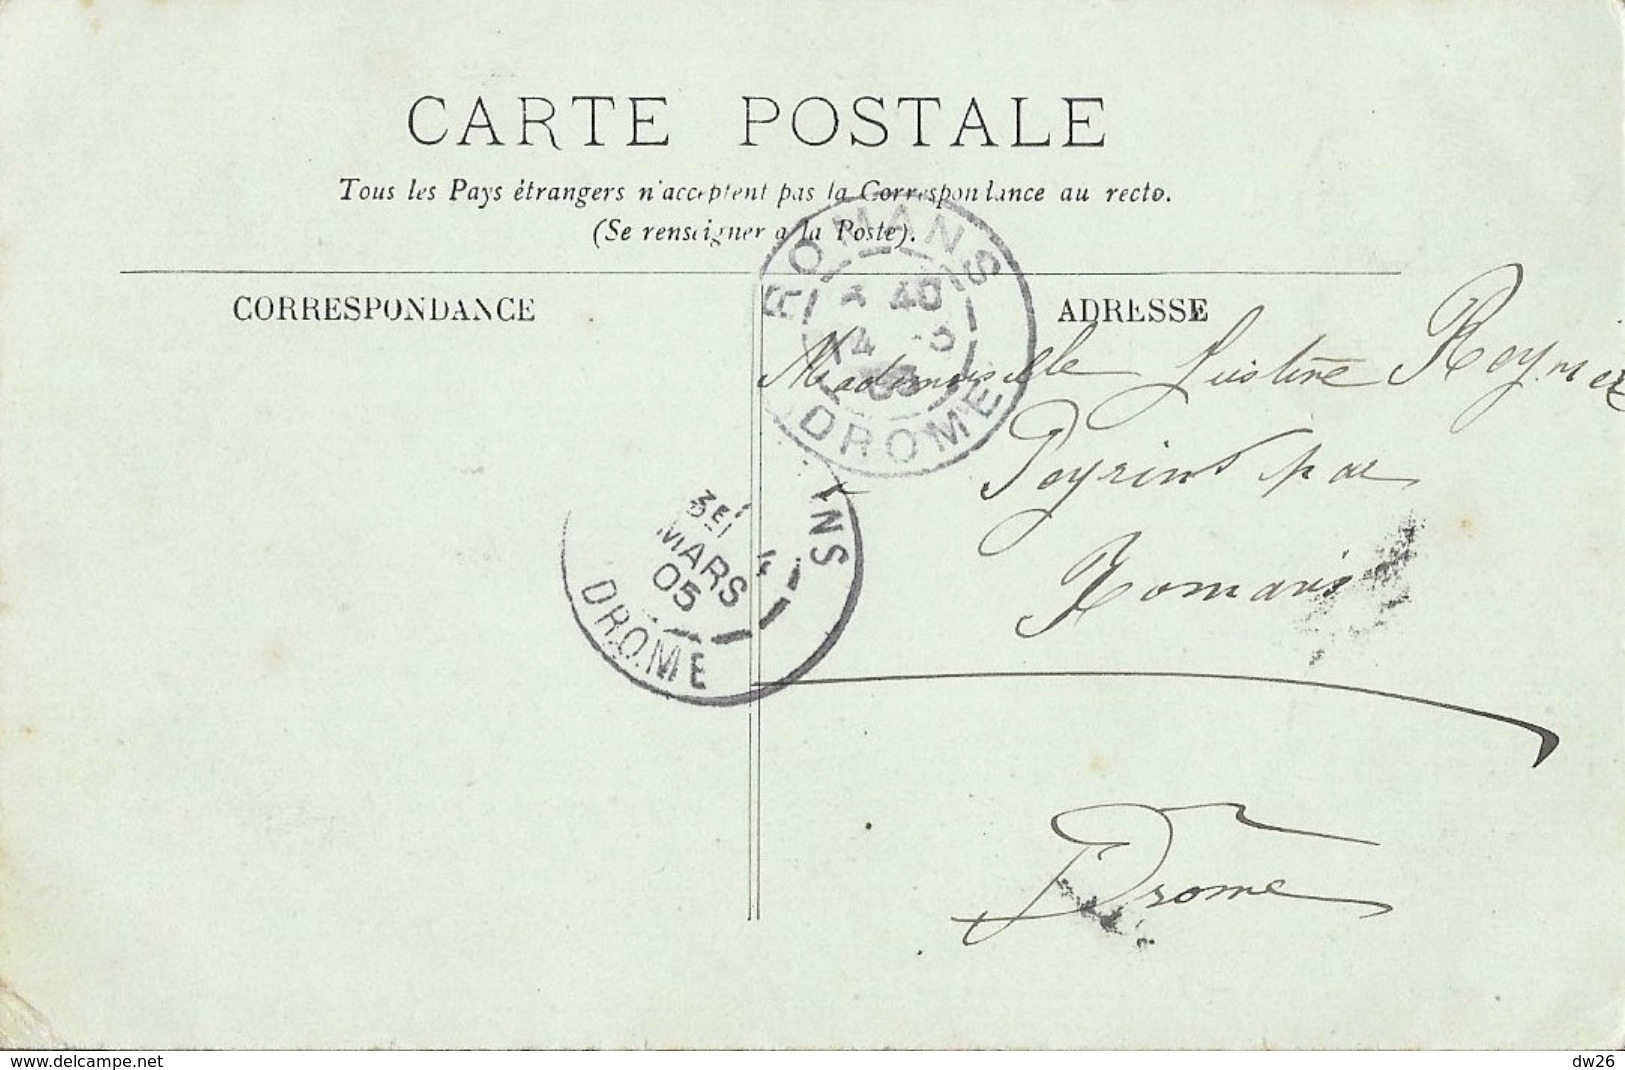 CARTE POSTALE
Tous les Pays étrangers n'acceptent pas la Correspondance au recto.
(Se renseigner a la Poste).
CORRESPONDANCE
ADRESSE
ROMANS
40
14
DROME
Mademoiselle
Peyrins par
Romans
Drome
3E
MARS
05
DROME
www.delcampe.net
dw26